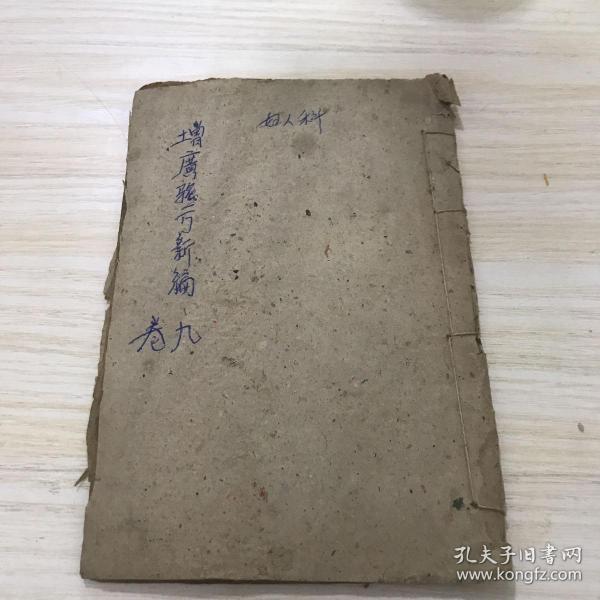 妇人科
增廣驗方新编
卷九
孔夫子旧書网
www.kongfz.com